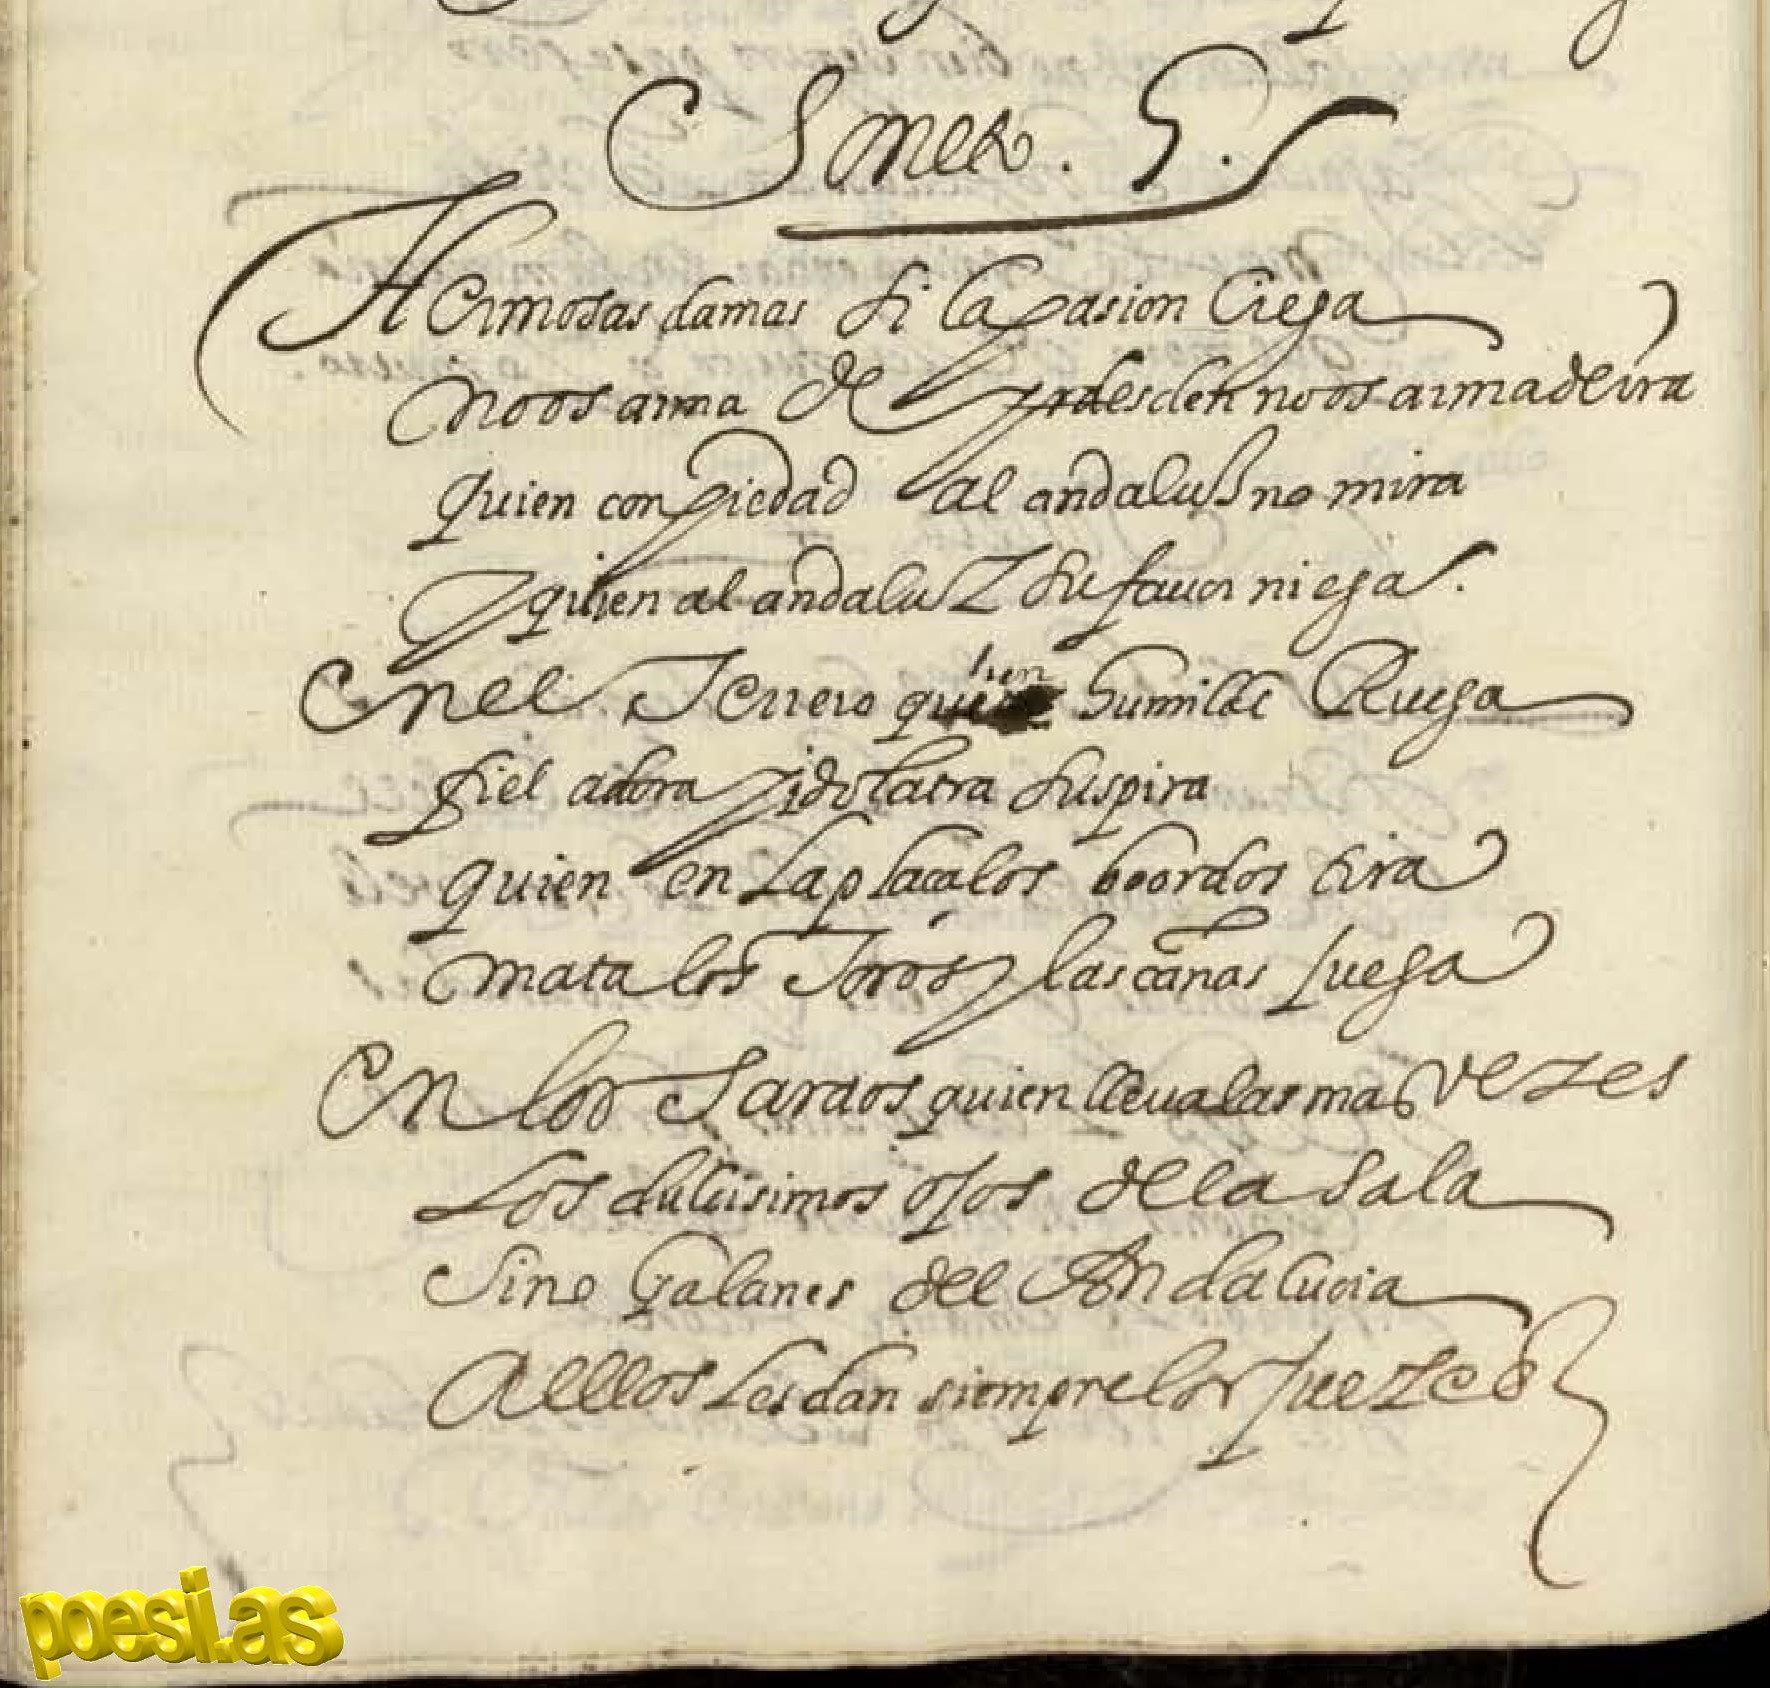 Soneto. G.
Hermosas damas si la pasion ciega
no os arma de y desden no os arma de ira
quien con piedad al andaluz no mira
y quien al andaluz su fauor niega.
En el Terrero quien humilde Ruega
fiel adora y idolatra suspira
quien en la plaça los bohordos tira
mata los Toros y las cañas Juega
En los Saraos quien lleua las mas vezes
Los dulcisimos ojos de la sala
Sino Galanes del Andalucia
A ellos Les dan siempre los Juezes
poesi.as